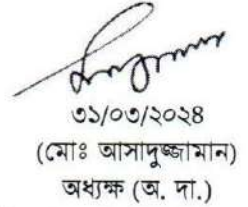 ৩১/০৩/২০২৪
(মোঃ আসাদুজ্জামান)
অধ্যক্ষ (অ. দা.)